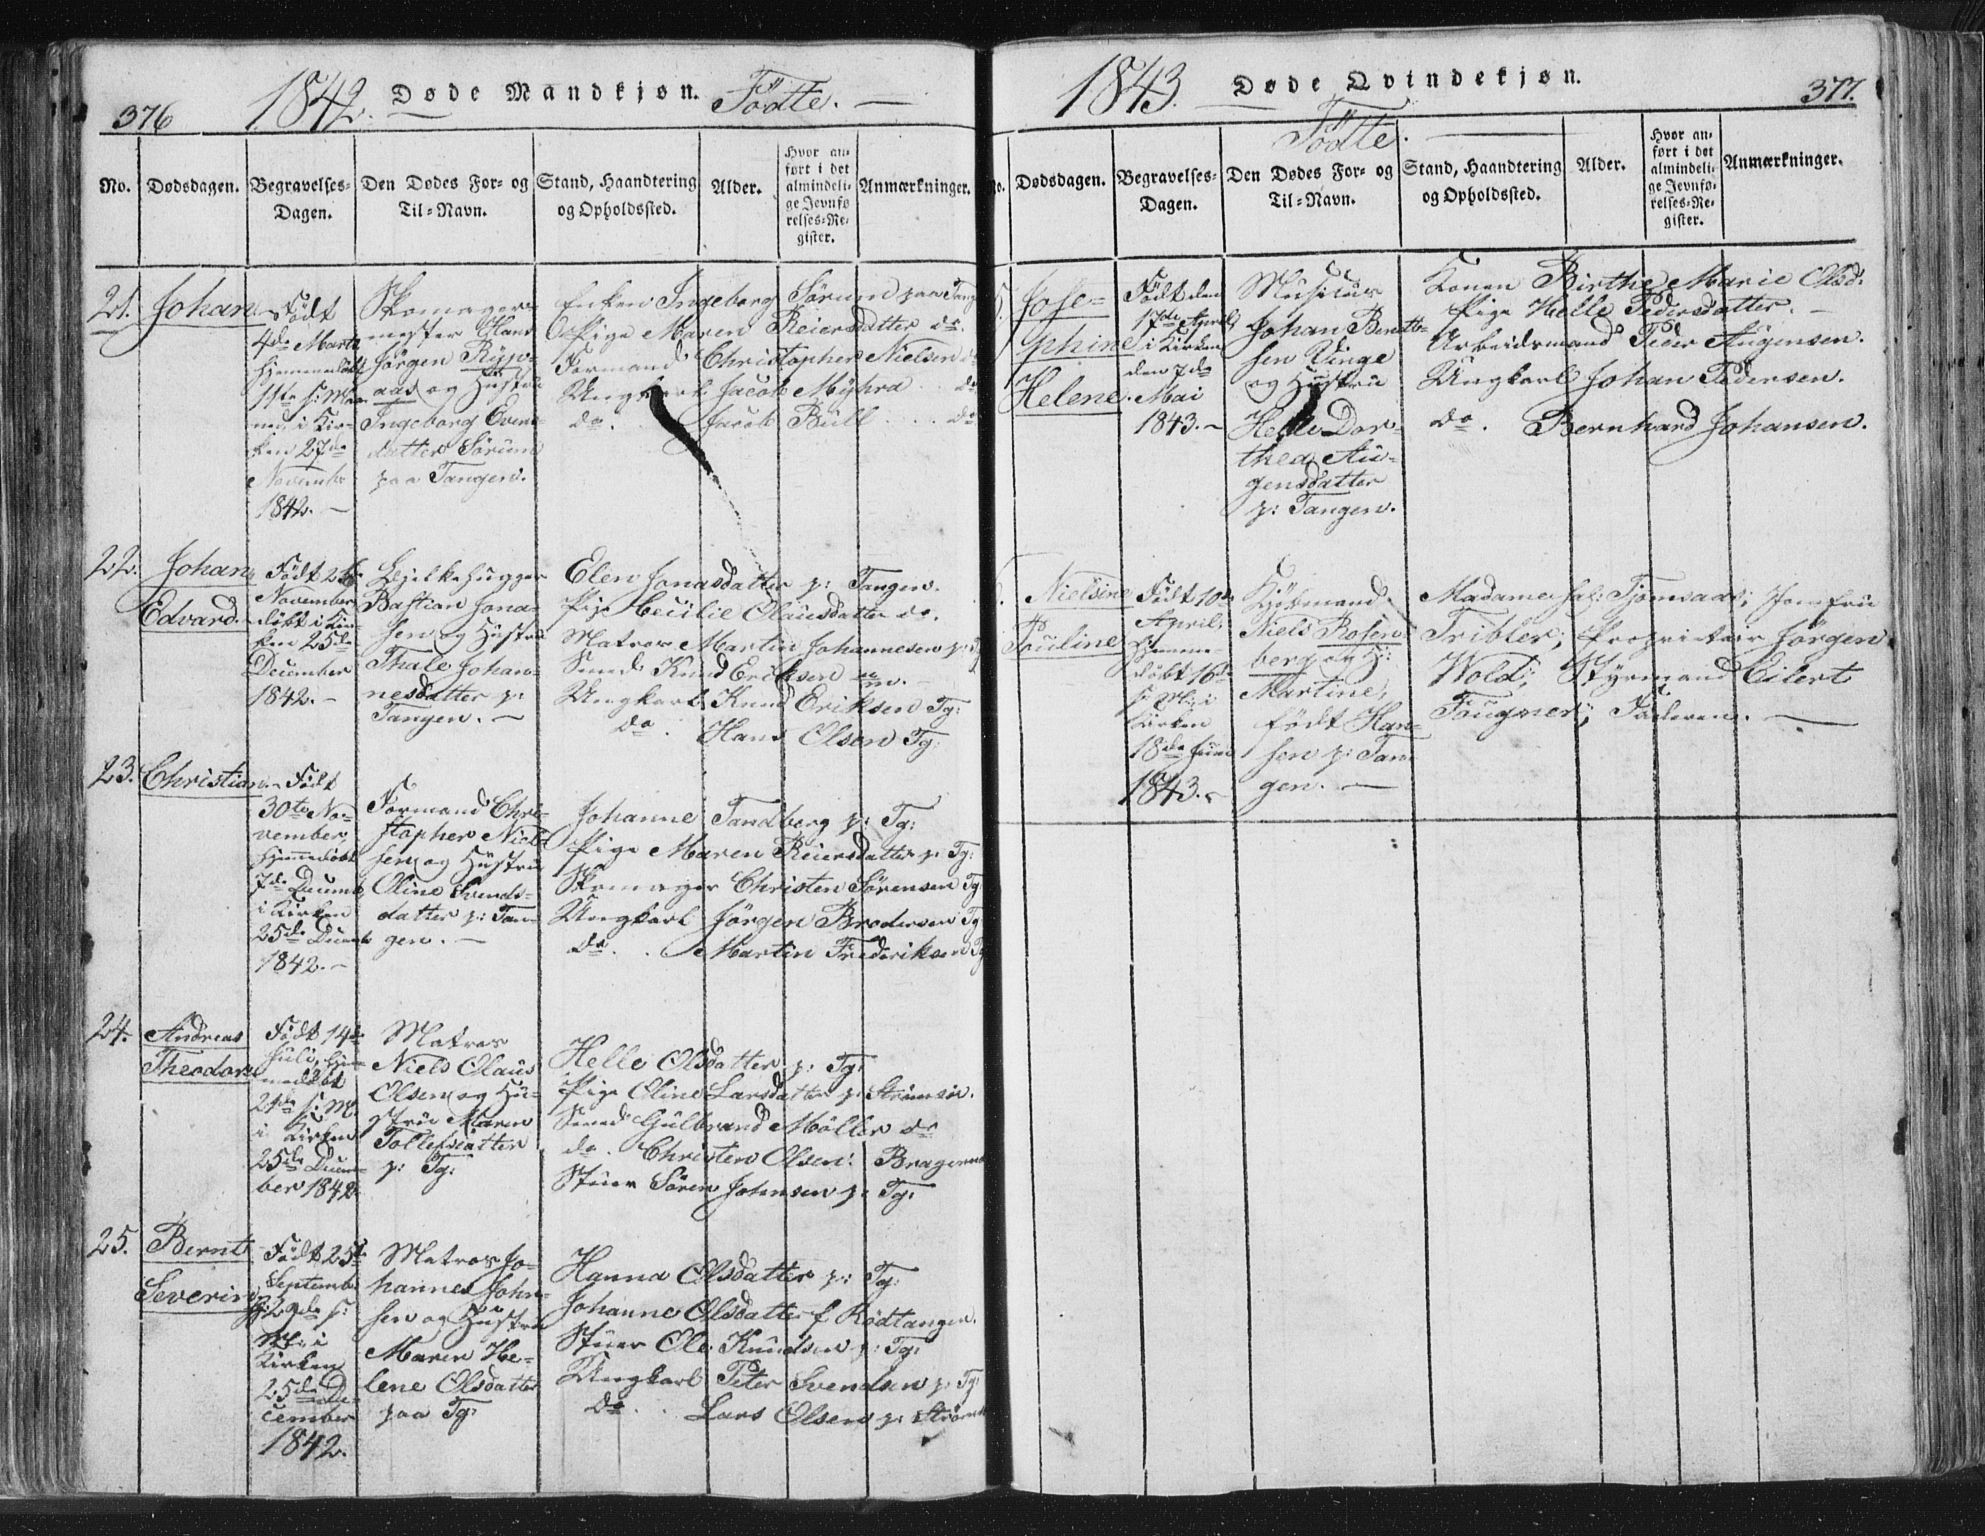 376
1842. Døde Mandkjøn. Födte. —
No.
Dødsdagen.
Begravelses-
Dagen.
Den Dødes For- og
Til-Navn.
Stand, Haandtering
og Opholdssted.
Alder.
Hvor an-
ført i det
almindeli-
ge Jevnfø
relses-Re-
gister.
Anmærkninger.
21. Johan
Födt
4de Marts
hjemmedöbt
11te s: M
i Kir-
ken 27de
November
1842. —
Skomager-
mester Hans
Jörgen Ryp-
aas og Hustru
Ingeborg Evens
datter Sörum
paa Tangen.
Enken Ingeborg Sörum paa Tang
Pige Maren Reiersdatter do.
Formand Christopher Nielsen do
Ungkarl Jacob Myhra . . do
do. . Jacob Bull . . . do
22. Johan
Edvard.
Födt 26
November
döbt i Kir
ken 25de
December
1842. —
Bjelkehugger
Bastian Jona-
sen og Hustru
Thale Johan-
nesdatter p:
Tangen. —
Elen Jonasdatter p: Tangen.
Pige Cecilie Olausdatter do.
Matros Martin Johannesen p:
Svend Knud Eriksen
Ungkarl Knud Eriksen Tg:
do . Hans Olsen Tg:
23. Christian.
Födt
30te No-
vember,
hjemmedöbt
7de Decemb
i Kirken
25de Decemb
1842. —
Formand Chri-
stopher Niel-
sen og Hustru
Oline Svends-
datter p: Tan-
gen. —
Johanne Tandberg p: Tg:
Pige Maren Reiersdatter p: Tg:
Skomager Christen Sörensen Tg
Ungkarl Jörgen Brodersen Tg
do. . Martin Frederiksen Tg
24. Andreas
Theodor
Födt 14de
Juli, hjem-
medöbt
21de s: M.
i Kirken
25de Decem-
ber 1842
Matros
Niels Olaus
Olsen og Hu-
stru Maren
Tollefsdatter
p: Tg:
Helle Olsdatter p: Tg:
Pige Oline Larsdatter p: Strömsöe.
Svend Gulbrand Möller do
do. Christen Olsen: Bragernes
Stuer Sören Johnsen p: Tg:
25. Bernt
Severin
Födt 25de
Septemb
29de s:
M: i
Kirken
25de De-
cember
1842.
Matros Jo-
hannes John-
sen og Hustru
Maren He-
lene Olsdatter
paa Tg:
Hanna Olsdatter p: Tg:
Johanne Olsdatter f Rödtangen.
Stuer Ole Knudsen p: Tg:
Ungkarl Peter Svendsen p: Tg:
do . . Lars Olsen p: Ströms
1843. Døde Qvindekjøn.
377.
Födte. —
No.
Dødsdagen.
Begravelses-
Dagen.
Den Dødes For- og
Til-Navn.
Stand, Haandtering
og Opholdssted.
Alder.
Hvor an-
ført i det
almindeli-
ge Jevnfø-
relses-Re-
gister.
Anmærkninger.
5. Jose-
phine
Helene.
Födt den
17de April,
i Kirken
den 7de
Mai
1843. —
Musicus
Johan Berntb-
sen Vinge
og Hustru
Helle Dor-
thea Au-
gensdatter
p: Tangen.
Konen Birthe Marie Olsd:
Pige Helle Pedersdatter. —
Arbeidsmand Peder Augensen.
Ungkarl Johan Pedersen.
do. Bernhard Johansen.
Nielsine
Pouline
Födt 10de
April,
hjemme-
döbt 16de
s: M: i
Kirken
18de Juni
1843. —
Kjöbmand
Niels Rosen-
berg og H:
Martine,
födt Han-
sen p: Tan-
gen. —
Madame Tjomsaas; Jomfru
Tribler; Proprietær Jörgen
Wold; Styrmand Eilert
Fougner; Faderen. —